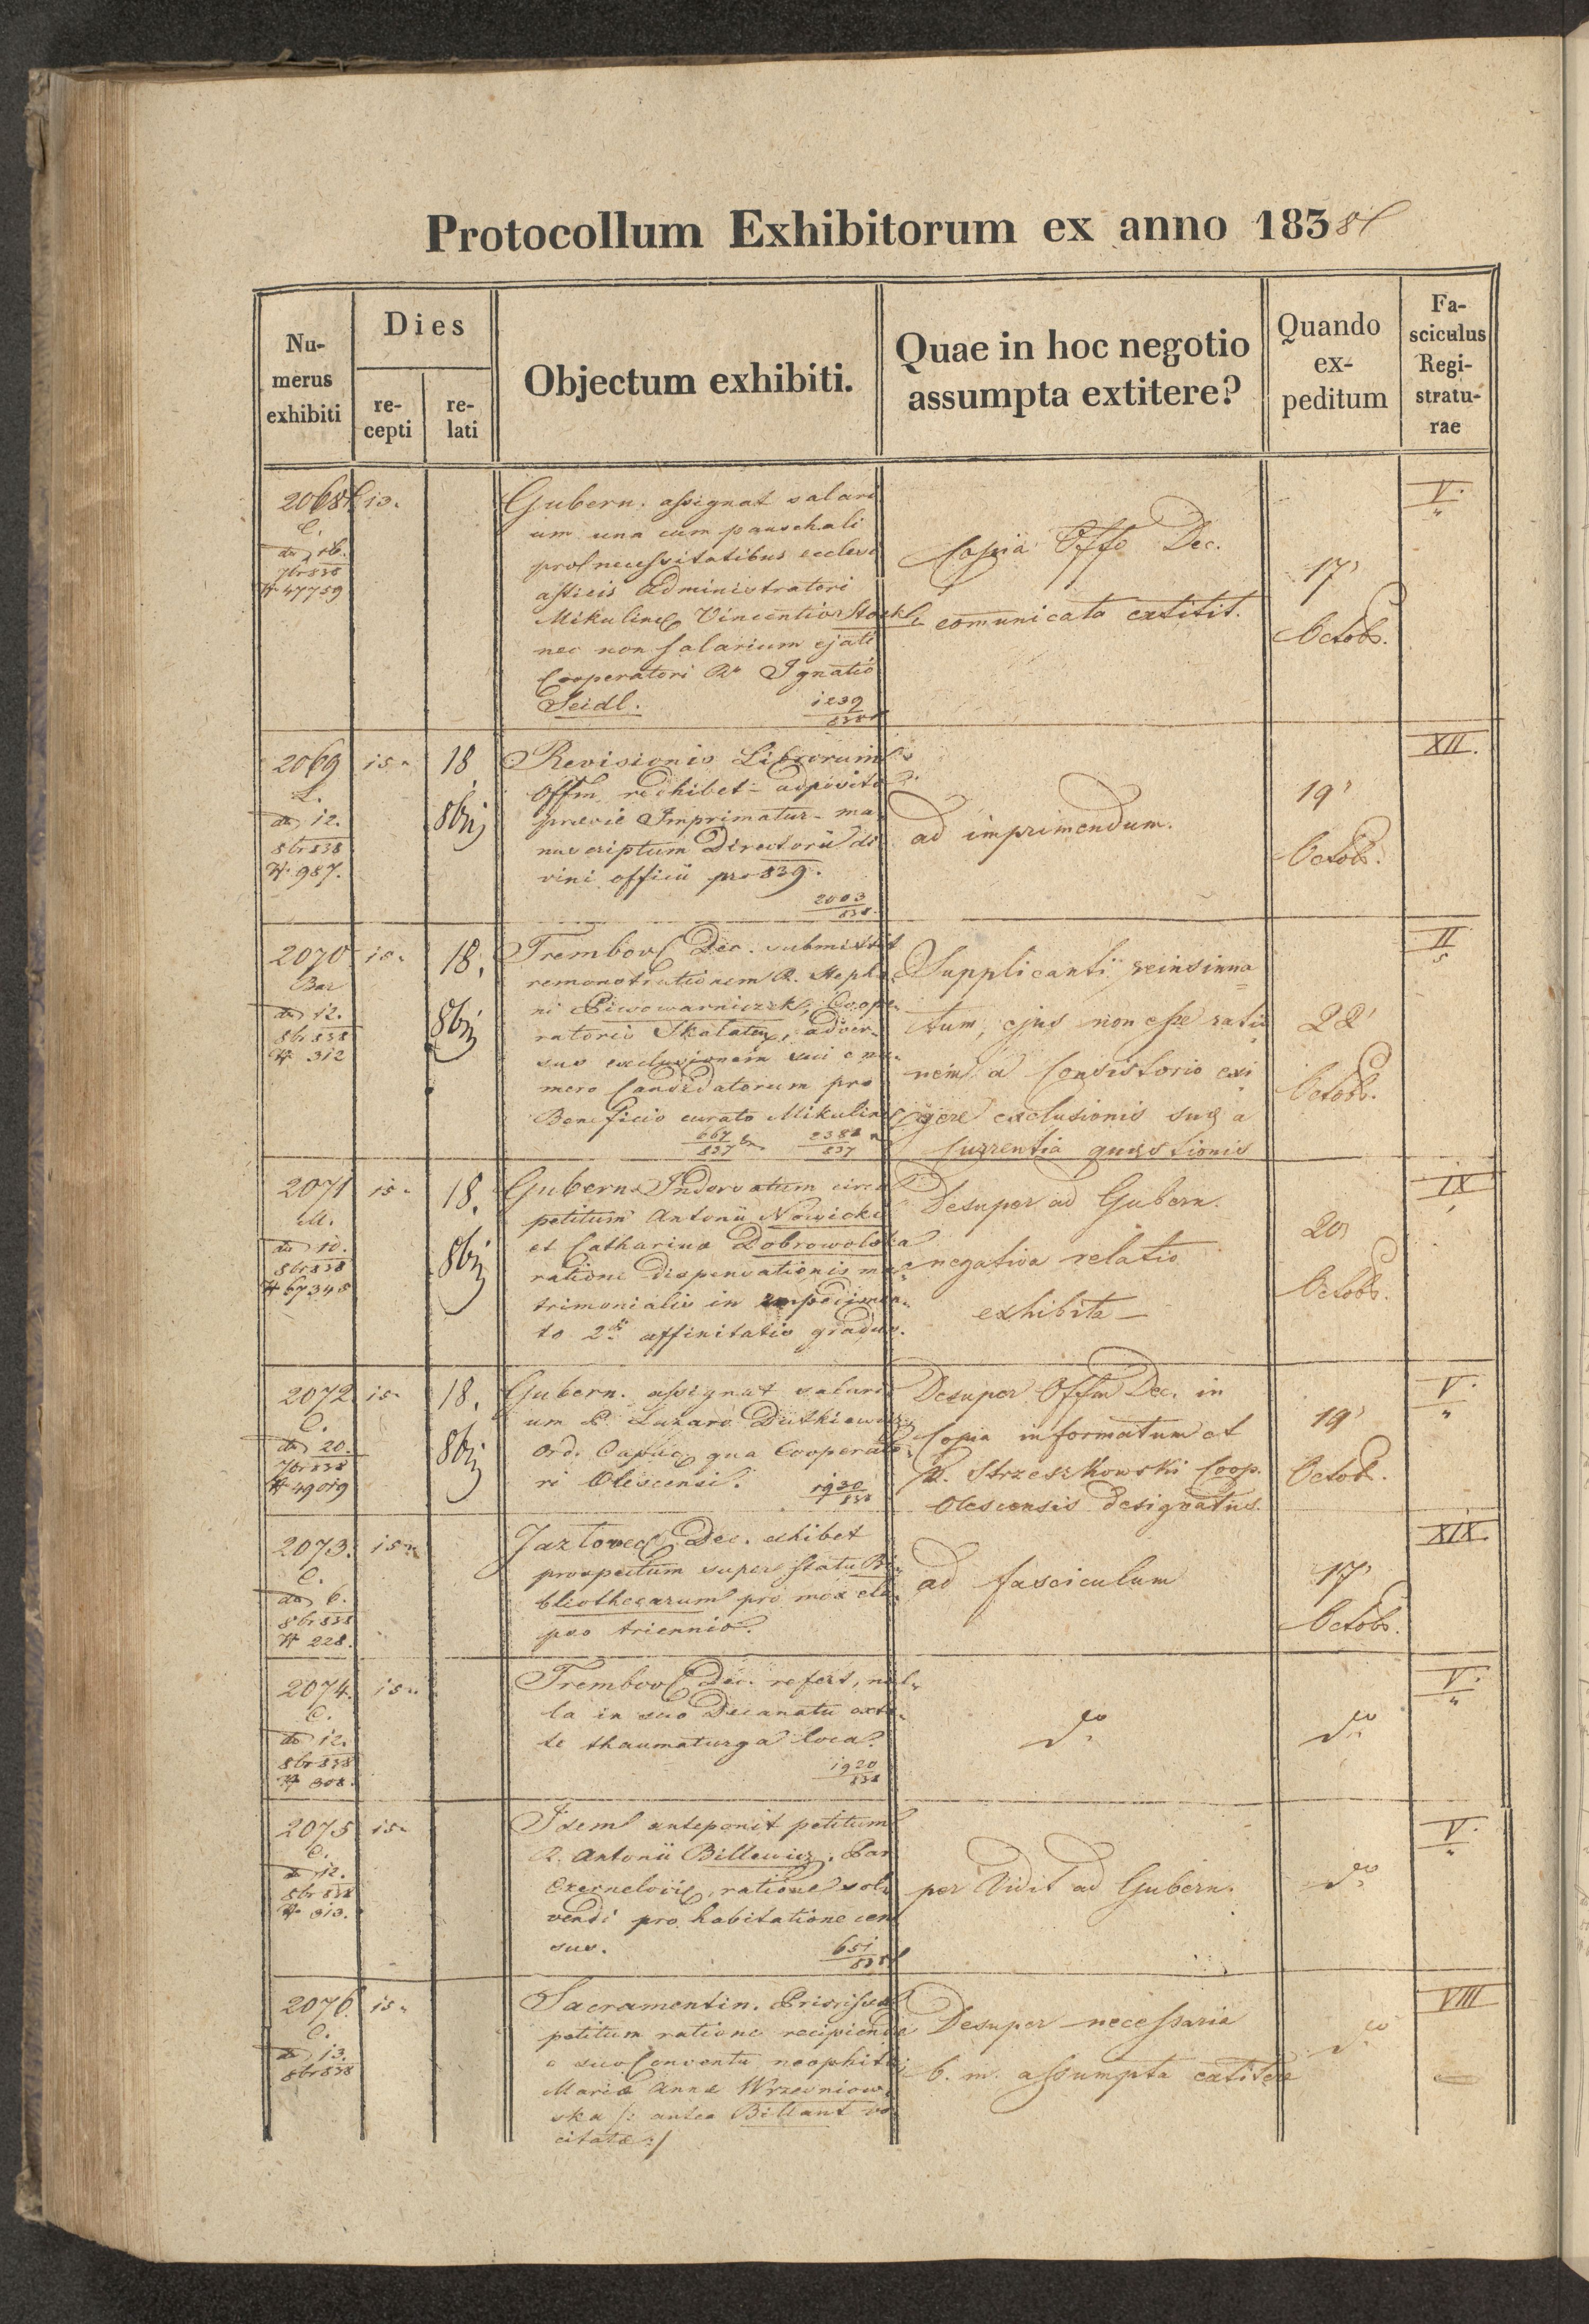 Protocollum Exhibitorum ex anno 1838
Nu-
merus
exhibiti
Dies
re-
cepti
re-
lati
Objectum exhibiti.
Quae in hoc negotio
assumpta extitere?
Quando
ex-
peditum
Fa-
sciculus
Regi-
stratu-
rae
2068
C.
16.
7br 838
47759
13.
Gubern. assignat salari
um una cum pauschali
pro necessitatibus ecclesi
asticis Administratori
Mikulinec Vincentio
nec non salarium
Cooperatori Rdo Ignatio
Seidl.
1239
838
Copia Offo Dec.
comunicata extitit.
17
Octob.
V.
2069
L.
12.
8br 838
987.
15.
18
8bris
Revisionis Librorum
Offm redhibet adposito
praevie Imprimatur - ma
nuscriptum Directorii di
vini officii pro 839.
2003
838.
ad imprimendum.
19
Octob.
XII.
2070
Ben
12.
8br 838
312
15.
18.
8bris
Trembovl Dec. submittit
remonstrationem R. Stepha
ni Piwowarniczek, Coope-
ratoris Skalaten, adver-
sus exclusionem sui e nu-
mero Candidatorum pro
Beneficio curato Mikulinec
667
837
2382
837
Supplicanti reinsinua
tum, ejus non esse ratio
nem a Consistorio exi
gere exclusionis suae a
Currentia quaestionis
22
Octob.
II
5
2071
M.
10.
8br 838
67345
15.
18.
8bris
Gubern. Indorsatum circa
petitum Antonii Nowicki
et Catharina Dobrowolska
ratione dispensationis ma-
trimonialis in impedimen-
to 2di affinitatis gradus.
Desuper ad Gubern.
negativa relatio
exhibita -
20
Octob.
IX
2072
C.
20.
7br 838
49019
15.
18.
8bris
Gubern. assignat salari
um P. Lazaro Dutkiewicz
Ord. Capuc. qua Cooperato-
ri Olescensi.
1930
838
Desuper Offm Dec. in
Copia informatum et
P. Strzeszkowski Coop.
Olescensis designatus.
19
Octob.
V.
2073.
C.
6.
8br 838
228.
15.
Jazlovec. Dec. exhibet
prospectum super statu Bi-
bliothecarum pro mox ela-
pso triennio.
ad fasciculum
17
Octob.
XIX.
2074.
C.
12.
8br 838
308.
15.
Trembovl Dec. refert, nul-
la in suo Decanatu exta-
re thaumaturga loca.
1920
838
do
do
V.
2075
C.
12.
8br 838
313.
15.
Idem anteponit petitum
R. Antonii Billewicz, Par
Czerneloviec, ratione sol-
vendi pro habitatione cen
sus.
651
838
per Vidit ad Gubern.
do
V.
2076.
C.
13.
8br 838
15.
Sacramentin.
petitum ratione recipiendae
e suo Conventu neophitae
Mariae Annae Wrzesniow-
ska /: antea Billant vo-
citatae :/
Desuper necessaria
b. m. assumpta extitere
do
VIII